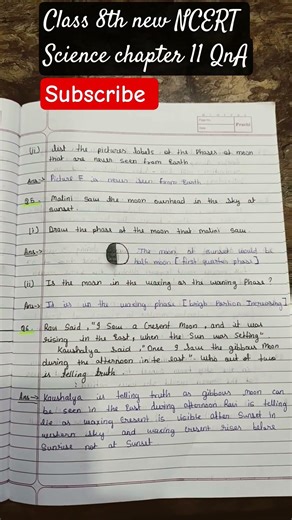 Class 8th new NCERT
Science chapter 11 QnA
Subscribe
(ii) list the pictures labels of the Phases of moon
that are never seen from Earth
Ans:→ Picture E is never seen from Earth
25. Malini saw the moon overhead in the sky at
sunset
(i) Draw the phase of the moon that malini saw
Ans:→ The moon at sunset would be
half moon [first quarter phase]
(ii) Is the moon in the waxing or the waning Phase?
Ans:→ It is in the waxing phase [brigh Portion Increasing]
26. Ravi Said, "I Saw a Cresent Moon, and it was
rising in the East, when the Sun was Setting"
Kaushalya said "Once I Saw the gibbous Moon
during the afternoon in te last". Who out of two
is telling truth
Ans→ Kaushalya is telling truth as gibbous Moon can
be seen in the East during afternoon Ravi is telling
lie as waxing Cresent is visible After Sunset in
western sky and waning Cresent rises before
Sunrise not at Sunset